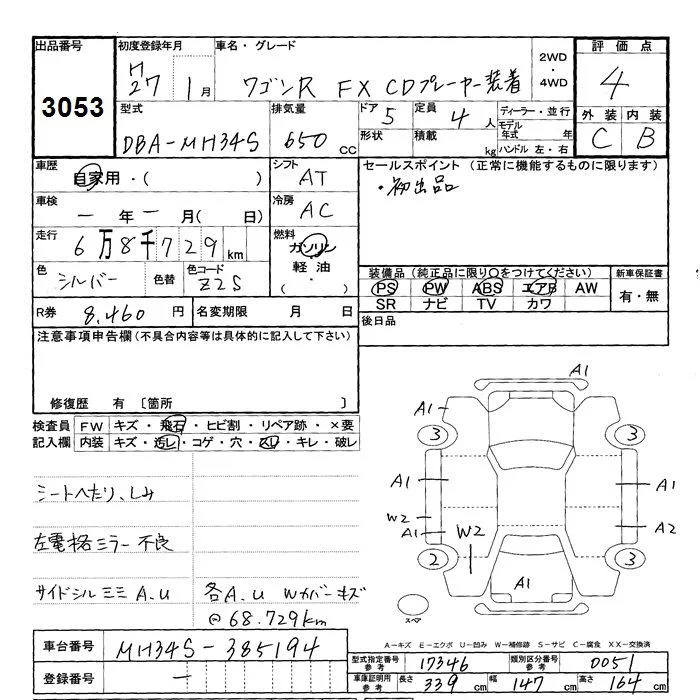 出品番号 3053
初度登録年月 H27 1月
車名・グレード ワゴンR FX CDプレーヤー装着
2WD ・ 4WD
評価点 4
外装 内装
C B
型式 DBA-MH34S
排気量 650 cc
ドア 5
形状
定員 4 人
積載 kg
ディーラー・並行
モデル年式 年
ハンドル 左・右
車歴 自家用・( )
シフト AT
車検 ー年ー月( G)
冷房 AC
走行 6万8千729km
燃料 ガソリン 軽油 ( ・ )
色 シルバー 色替 色コード Z2S
R券 8,460 円 名変期限 月 日
セールスポイント(正常に機能するものに限ります)
・初出品
装備品(純正品に限り○をつけてください)
PS PW ABS エアB AW
SR ナビ TV カワ
新車保証書
有・無
後日品
注意事項申告欄(不具合内容等は具体的に記入して下さい)
修復歴 有 〔箇所 〕
検査員 FW キズ・飛石・ヒビ割・リペア跡・×要
記入欄 内装 キズ・汚レ・コゲ・穴・スレ・キレ・破レ
シートへたり、しみ
左電格ミラー不良
サイドシルミミA.U 各A.U Wカバーキズ
@68.729km
A1
A1
3 3
A1 A1
W2
A1 A2
W2
2 3
A1
スペア
A-キズ E-エクボ U-凹み W-補修跡 S-サビ C-腐食 XX-交換済
車台番号 MH34S-385194
登録番号 ー
型式指定番号参考 17346 類別区分番号参考 0051
車庫証明用参考 長さ 339 cm 幅 147 cm 高さ 164 cm